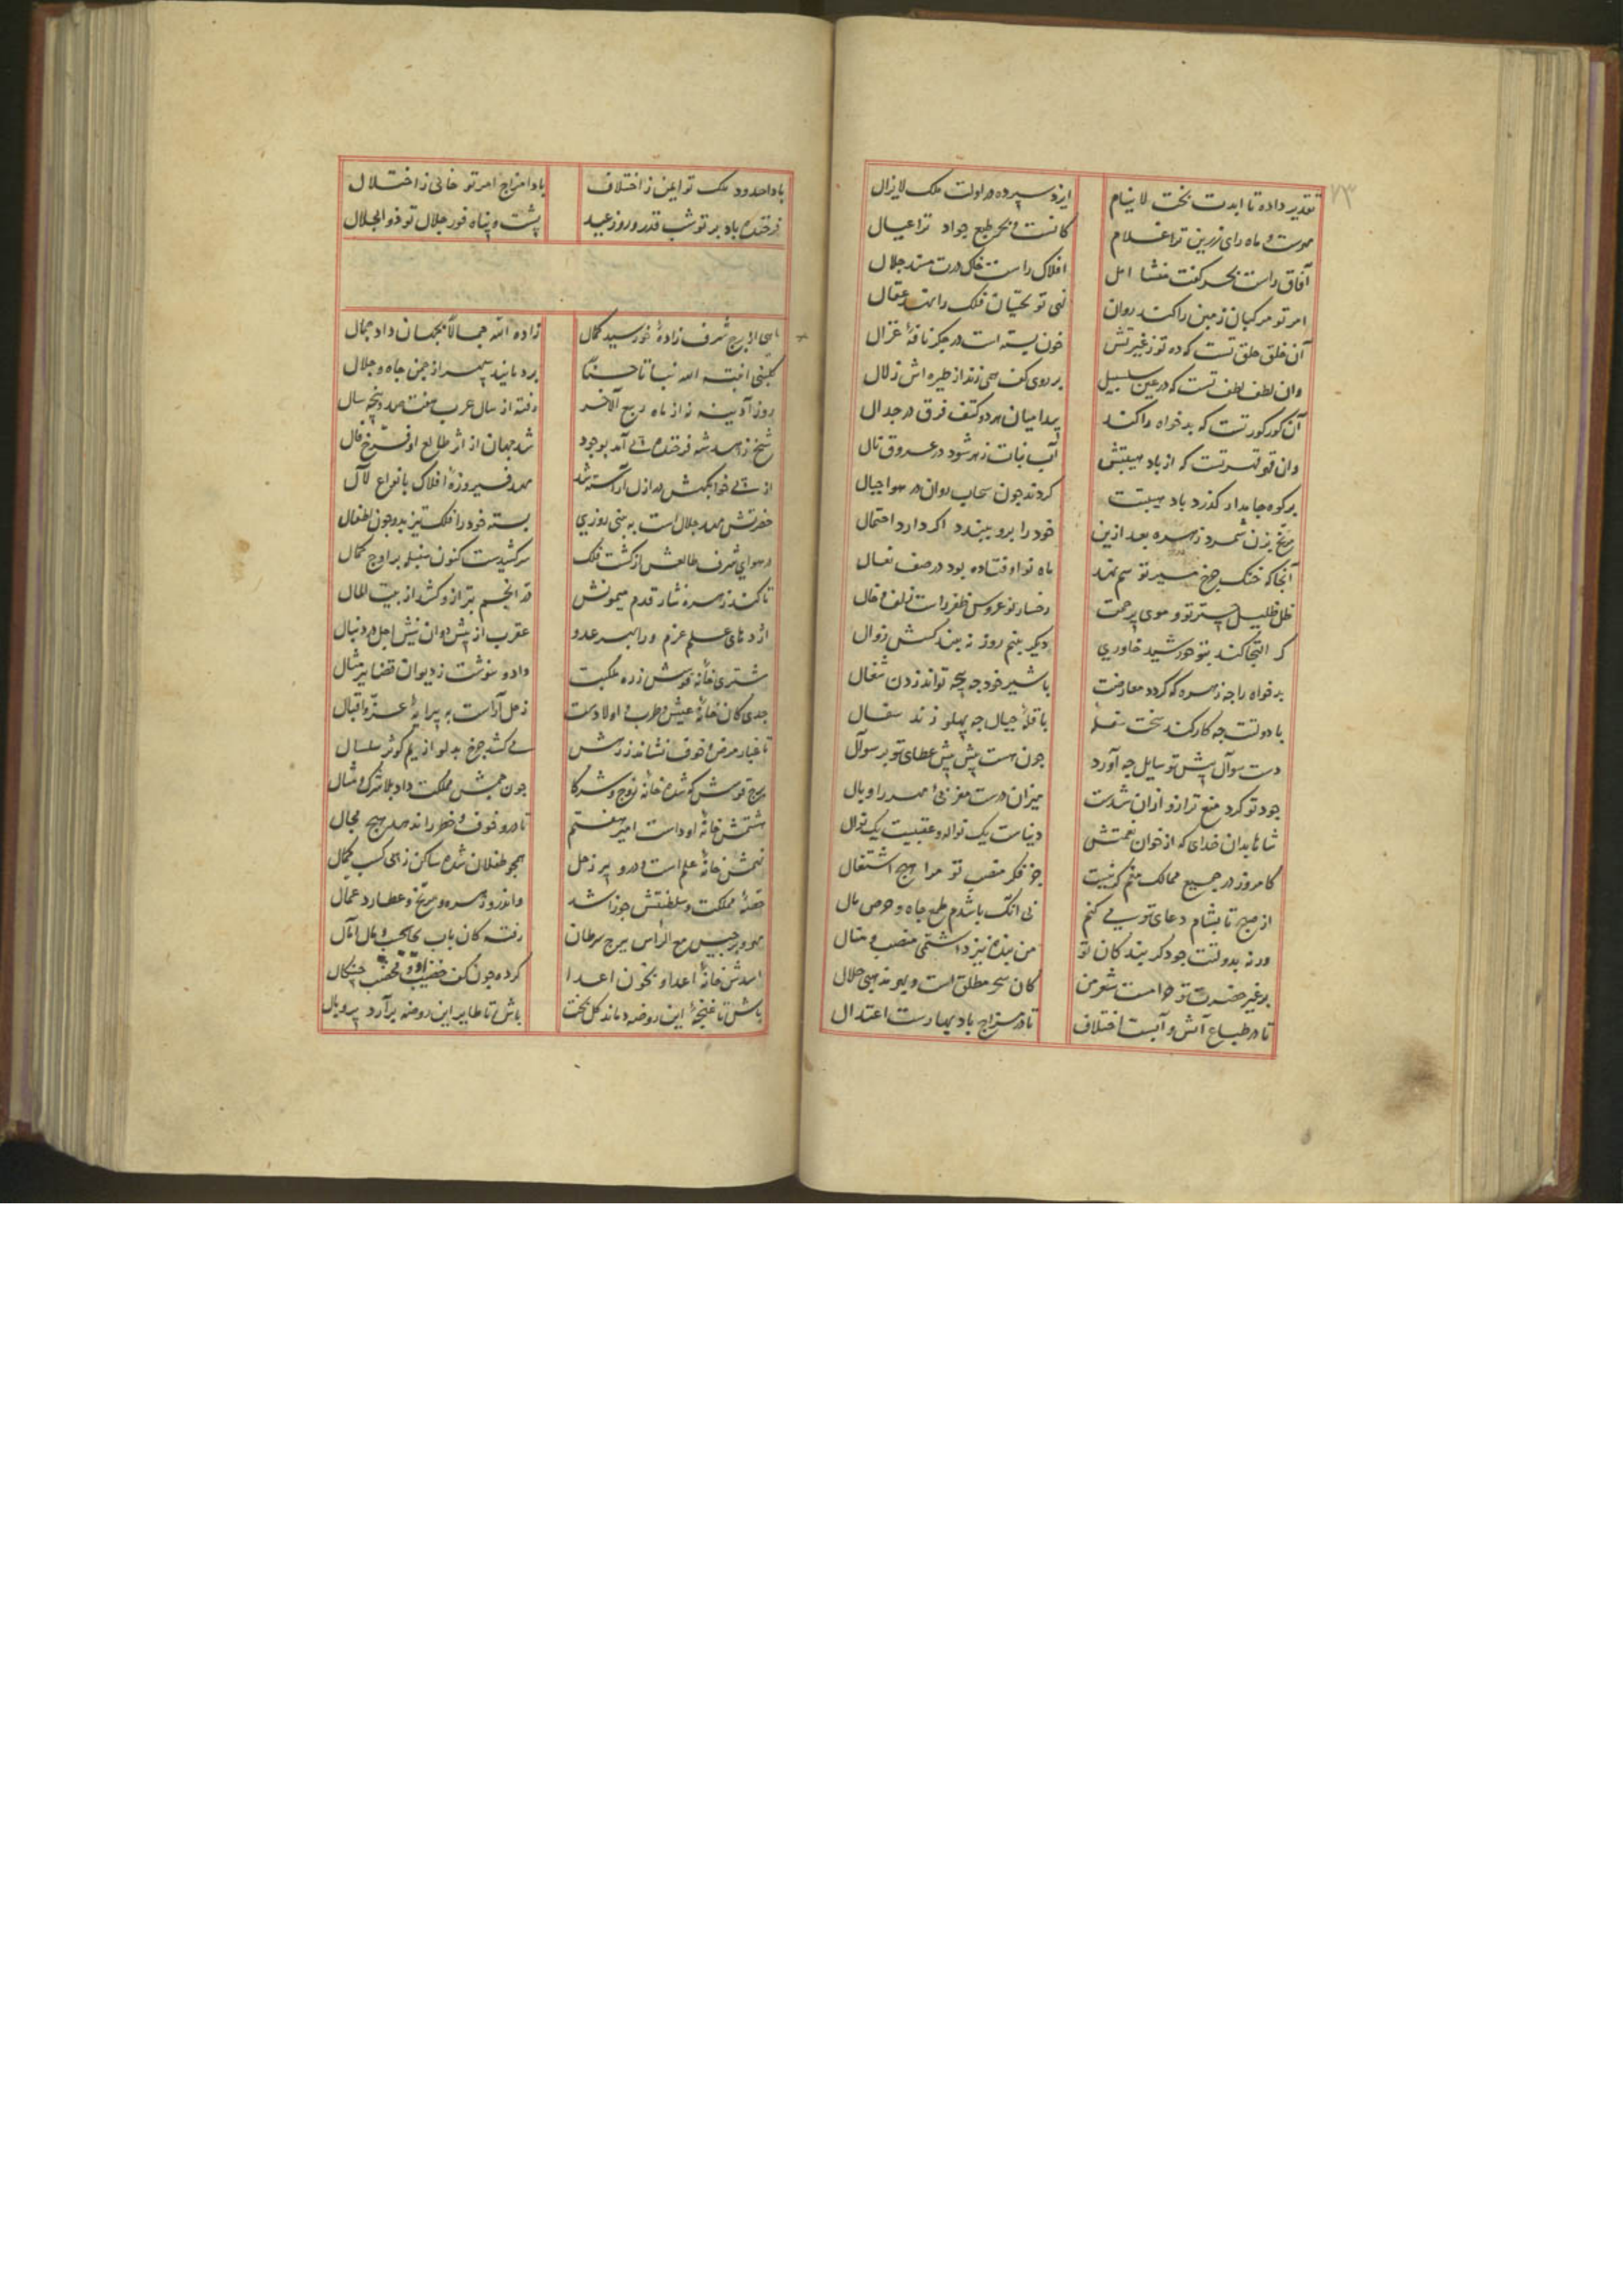 ۷۳
تقدیر داده تا ابدت بخت لاینام
ایزد سپرده دولت ملک لایزال
ماه رای زرین ترا غلام
کانست و بحر طبع جواد ترا عیال
آفاق راست بحر کفت منشا امل
افلاک راست خاک درت مسند جلال
امر تو مرکبان زمین را کند روان
نهی تو بختیان فلک را نهد عقال
آن خلق خلق تست که ده تو ز غیرتش
خون بسته است در جکر نافهٔ غزال
وان لطف لطف تست که در عین سلسبیل
بر روی کف همی زند از طیره اش زلال
آن تست که بدخواه را کند
پیدا میان هر دو کتف فرق در جدال
وان تست که از باد هیبتش
آب نبات زهر شود در عروق نال
بر کوه جامد ار کذرد باد هیبتت
کردند جون سحاب روان در هوا جبال
مریخ بزن شمرد زهره بعد ازین
خود را برو ببندد اکر دارد احتمال
آنجا که خنک جرخ مسیر تو سم نهد
ماه نو اوفتاده بود در صف نعال
ظل ظلیل جتر تو و موی پرجمت
رخسار نوعروس ظفر راست زلف و خال
کر التجا کند بتو خورشید خاوری
دیکر بنیم روز نبیند کسش زوال
بدخواه را جه زهره که کردد معارضت
با شیر خود جه پنجه تواند زدن شغال
با دولتت جه کار کند بخت سفله
با قلهٔ جبال جه پهلو زند سفال
دست سوآل پیش تو سایل جه آورد
جون هست پیش پیش عطای تو بر سوآل
جود تو کرد منع ترازو از ان شدت
میزان درست مغربی مهر را وبال
شاها بدان خدای که از خوان نعمتش
دنیاست یک نواله و عقبیست یک نوال
کامروز در جمیع ممالک منم که نیست
جز فکر منقبت تو مرا هیچ اشتغال
از صبح تا بشام دعای تو می کنم
نی انک باشدم طمع جاه و حرص مال
ورنه بدولتت جو دکر بندکان تو
من بنده نیز داشتمی منصب و منال
بر غیر حضرت تو حرامست شعر من
کان سحر مطلق است و بهر مذهبی حلال
تا در طباع آتش و آبست اختلاف
تا در مزاج باد بهارست اعتدال
بادا حدود ملک تو ایمن ز اختلاف
بادا مزاج امر تو خالی ز اختلال
فرخنده باد بر تو شب قدر و روز عید
پشت و پناه قدر جلال تو ذو الجلال
ماهی از برج شرف زادهٔ خورسید کمال
زاده الله جمالا بجهان داد جمال
کلبنی انبته الله نباتا حسنا
بردمانید سپهر از جمن جاه و جلال
روز آدینه نه از ماه ربیع الآخر
رفته از سال عرب هفتصد و پنجه سال
شیخ زاهد شه فرخنده پی آمد بوجود
شد جهان از اثر طالع او فرخ فال
از پی خوابکهش در ازل آراسته شد
مهد فیروزهٔ افلاک بانواع لآل
حضرتش مهد جلال است به بین روزی
بسته خود را فلک نیز بدو جون اطفال
در هوای شرف طالعش از کشت فلک
سر کشیدست کنون سنبله بر اوج کمال
تا کند زهره نثار قدم میمونش
نقد انجم بترازو کشد از بیت المال
اژدهای علم عزم ورا بهر عدو
عقرب از پیش دوان نیش اجل در دنبال
مشتری خانهٔ قوسش زده ملکیت
داد و بنوشت ز دیوان قضا بر مثال
جدی کان خانهٔ عیش و طرب و اولادست
زحل آراست به پیرایهٔ عز و اقبال
تا غبار مرض و خوف نشاند ز درش
می کشد جرخ بدلو از یم کوثر سلسال
برج قوسش که شده خانهٔ زوج و شرکا
جون همش مملکت داد بلا شرک و مثال
هشتمش خانهٔ او داست امیر هفتم
تا درو خوف و خطر را ندهد هیچ مجال
نهمش خانهٔ علم است و درو پیر زحل
همجو طفلان شده ساکن ز پی کسب کمال
خانهٔ مملکت و سلطنتش جوزا شد
واندرو زهره و مریخ و عطارد عمال
مه و برجیس مع الراس ببرج سرطان
رفته کان باب
اسدش خانهٔ اعدا و بخون اعدا
کرده جون کف خضیب او مخضب جنکال
باش تا غنجهٔ این روضه دماند کل بخت
باش تا طایر این روضه برآرد پر و بال